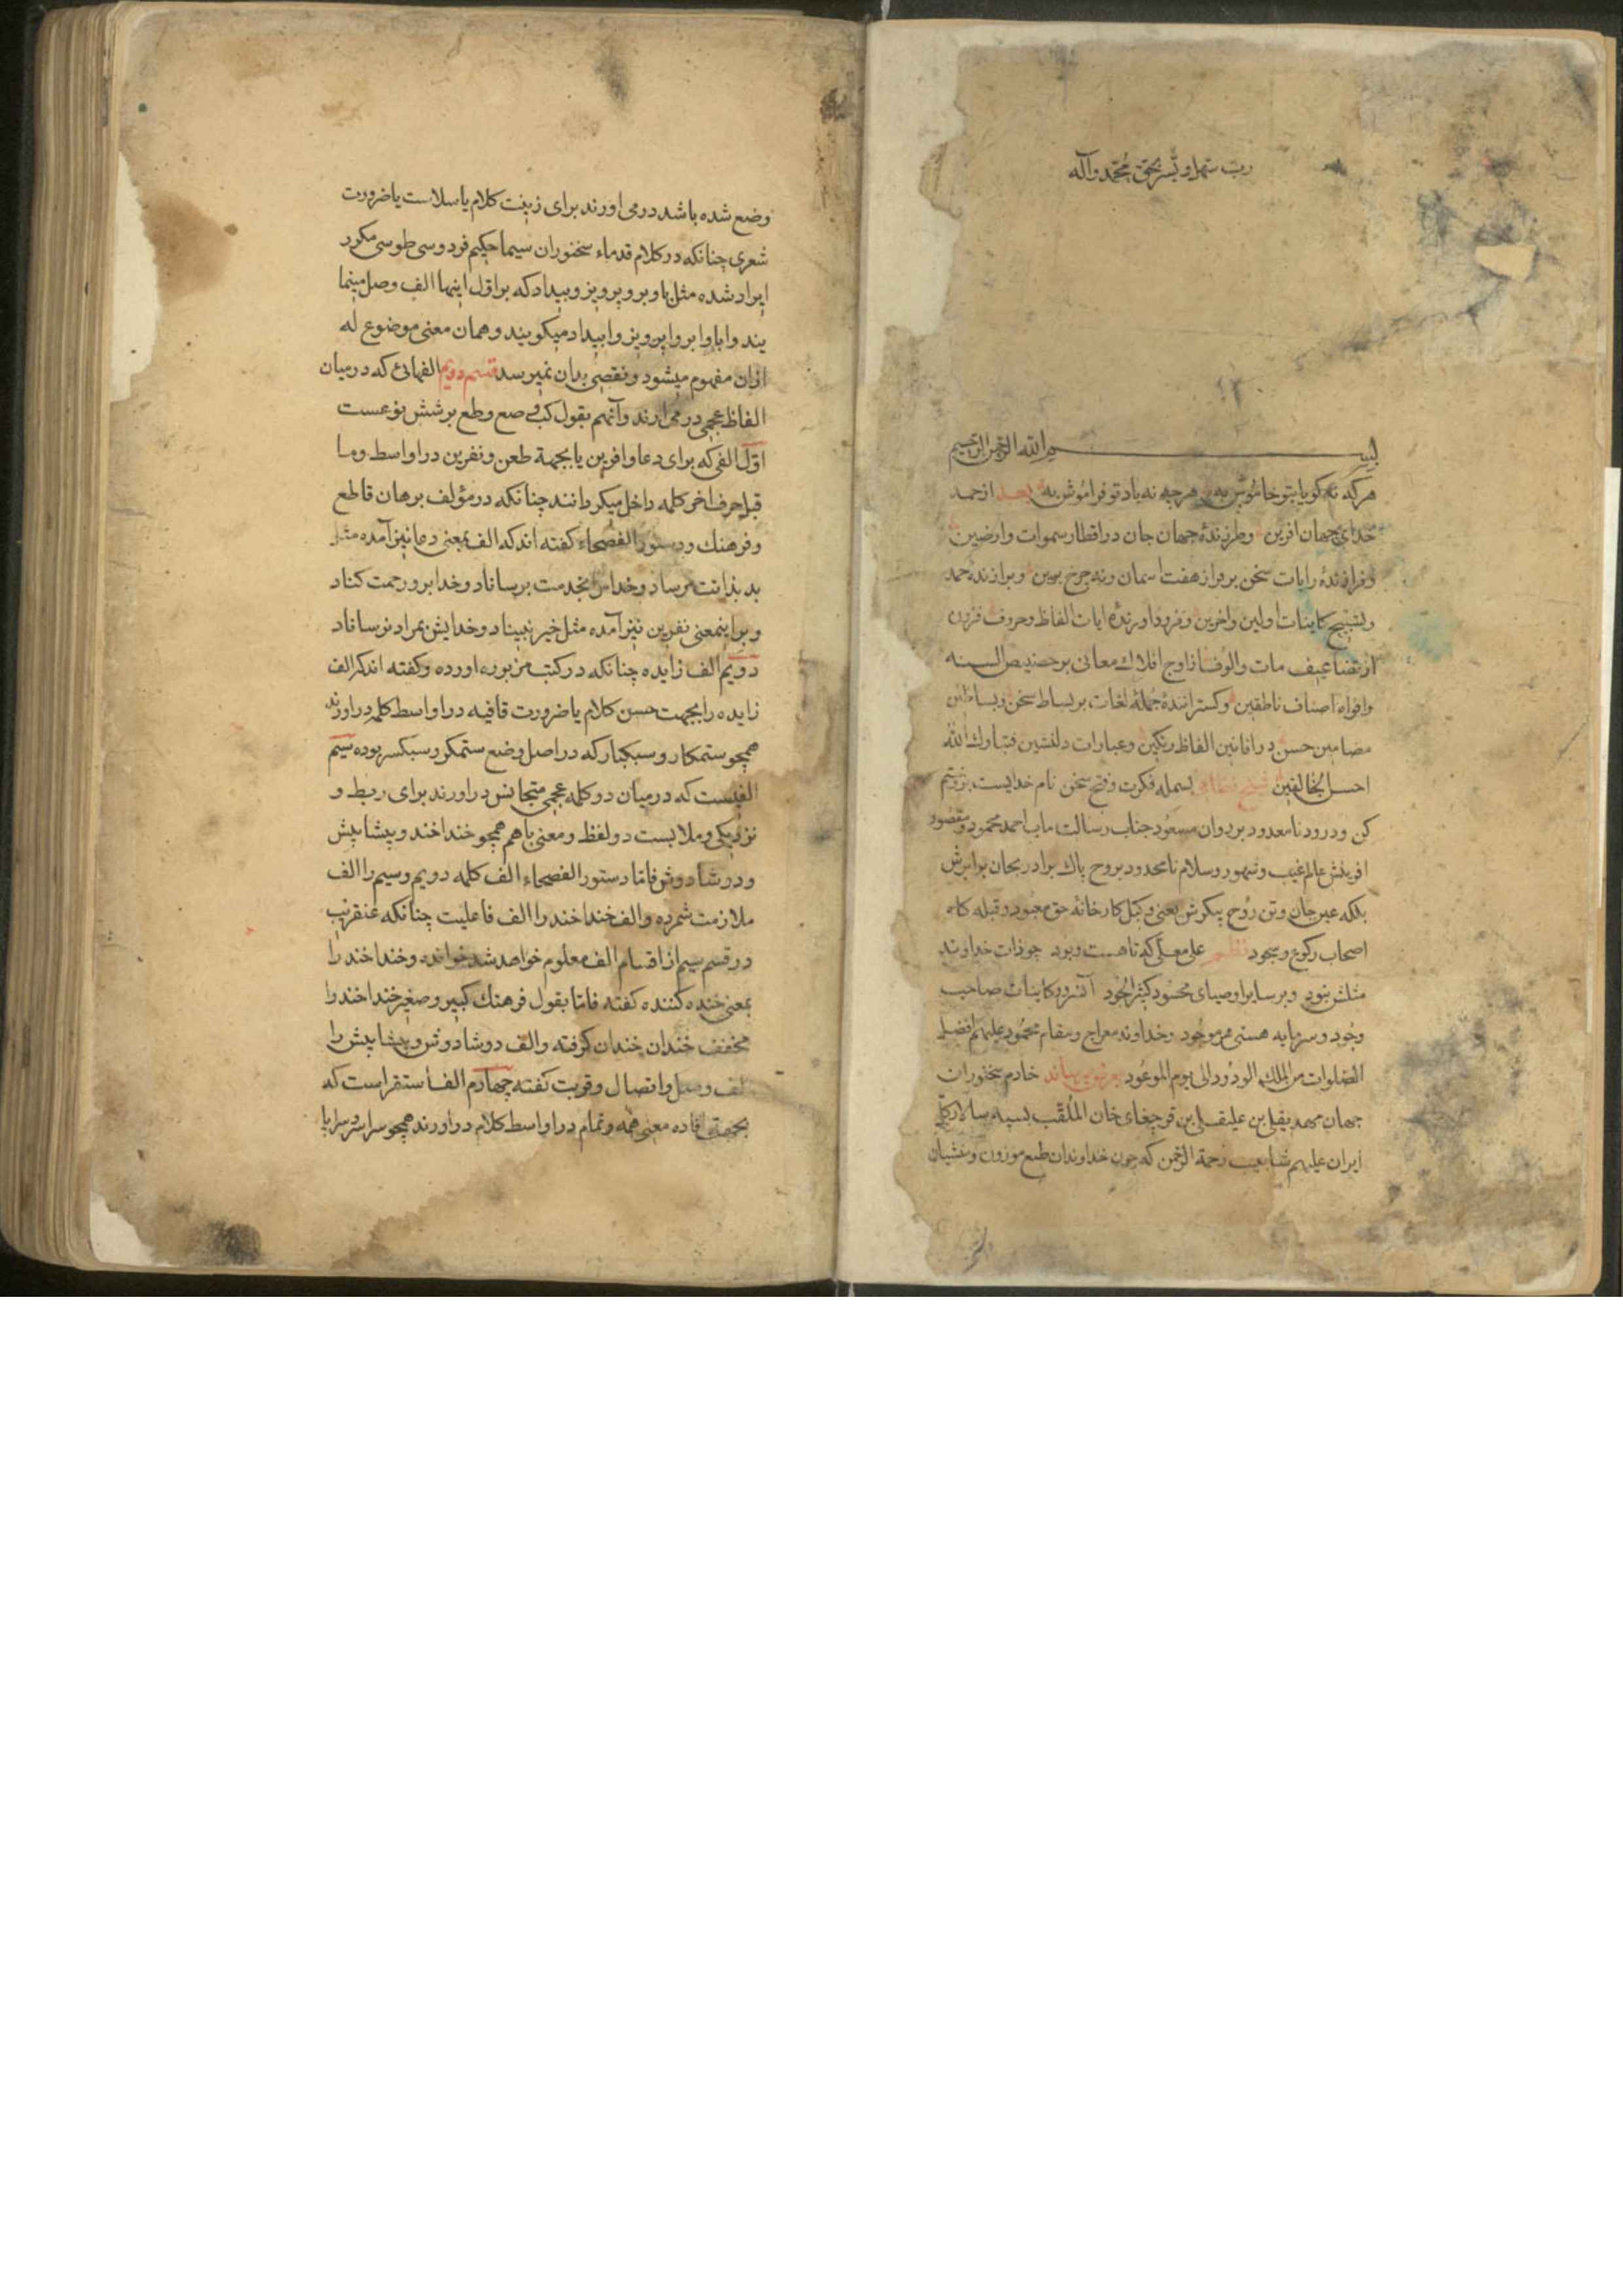 رب سهل و یسر بحق محمد و آله
بسم الله الرحمن الرحیم
هرکه نه کویا بتو خاموش به هرچه نه یاد تو فراموش به بعد از حمد
خدای جهان افرین وطرازندهٔ جهان جان در اقطار سموات وارضین
وفرازندهٔ رایات سخن بر فراز هفت اسمان ونه چرخ برین وبرازندهٔ حمد
وتسبیح کاینات اولین واخرین وفرود اورندهٔ ایات الفاظ وحروف فزون
از تضاعیف مات والوف از اوج افلاک معانی بر حضیض السنه
وافواه اصناف ناطقین وکسترانندهٔ جملهٔ لغات بر بساط سخن
مضامین حسن در افانین الفاظ رنکین وعبارات دلنشین فتبارک الله
احسن الخالقین شیخ نظامی بسمله فکرت وفتح سخن نام خدایست برو ختم
کن ودرود نامعدود بر روان مسعود جناب رسالت ماب احمد محمود ومقصود
افرینش عالم غیب وشهود وسلام نامحدود بروح پاک برادر بجان برابرش
بلکه عین جان وتن روح پیکرش یعنی وکیل کارخانهٔ حق معبود وقبله کاه
اصحاب رکوع وسجود نظم علی معلی که تا هست وبود چو ذات خداوند
مثلش نبود وبر سایر اوصیای محسود کثیر الجود آنسرور کاینات صاحب
وجود وسرمایه هستی هر موجود وخداوند معراج ومقام محمود علیهم افضل
الصلوات من الملک الودود الی یوم الموعود معروض میرساند خادم سخنوران
جهان مهدیقلی بن علیقلی بن قرچغای خان الملقب بسپه سالار کل
ایران علیهم شابیب رحمة الرحمن که چون خداوندان طبع موزون ومنشیان
وضع شده باشد درمی اورند برای زینت کلام یا سلاست یا ضرورت
شعری چنانکه در کلام قدماء سخنوران سیما حکیم فردوسی طوسی مکرر
ایراد شده مثل با وبر و پرویز وبیداد که بر اول اینها الف وصل مینما
یند وابا وابر واپرویز وابیداد میکویند وهمان معنی موضوع له
ازان مفهوم میشود ونقصی بدان نمیرسد قسم دویم الفهائی که در میان
الفاظ عجمی در می ارند وآنهم بقول کب فی صع وطع بر شش نوعست
اول الفی که برای دعا وافرین یا بجهة طعن ونفرین در اواسط وما
قبل حرف اخر کلمه داخل میکردانند چنانکه در مؤلف برهان قاطع
وفرهنک ودستور الفصحاء کفته اند که الف بمعنی دعا نیز آمده مثل
بدیدانت مرساد وخداش بخدمت برساناد وخدا برو رحمت کناد
وبراینمعنی نفرین نیز آمده مثل خیر نبیناد وخدایش بمراد نرساناد
دویم الف زایده چنانکه در کتب مزبوره اورده وکفته اند که الف
زایده را بجهت حسن کلام یا ضرورت قافیه در اواسط کلمه در اورند
همچو ستمکار وسبکبار که در اصل وضع ستمکر وسبکسر بوده سیم
الفیست که در میان دو کلمه عجمی متجانس در اورند برای ربط و
نزدیکی وملابست دو لفظ ومعنی باهم همچو خنداخند وپیشاپیش
ودوشادوش فاما دستور الفصحاء الف کلمه دویم وسیم را الف
ملازمت شمرده والف خنداخند را الف فاعلیت چنانکه عنقریب
در قسم سیم از اقسام الف معلوم خواهد شد خوانده وخنداخند را
بمعنی خنده کننده کفته فاما بقول فرهنک کبیر وصغیر خنداخند را
مخفف خندان خندان کرفته والف دوشادوش وپیشاپیش را
الف وصل واتصال وقربت کفته چهارم الف استقرا است که
بجهة افاده معنی همه وتمام در اواسط کلام در اورند همچو سراسر وسراپا